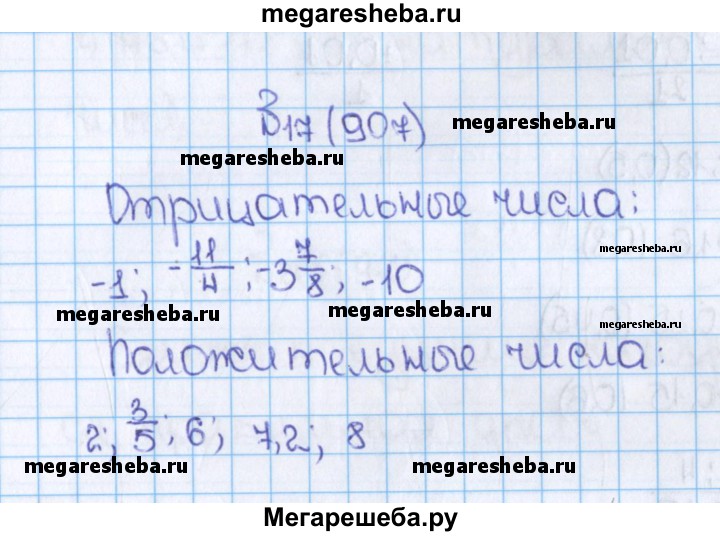 megaresheba.ru
В17 (907)
megaresheba.ru
megaresheba.ru
Отрицательные числа:
megaresheba.ru
-1; -11/4; -3 7/8; -10
megaresheba.ru
megaresheba.ru
megaresheba.ru
Положительные числа:
2; 3/5; 6; 7,2; 8
megaresheba.ru
megaresheba.ru
Мегарешеба.ру